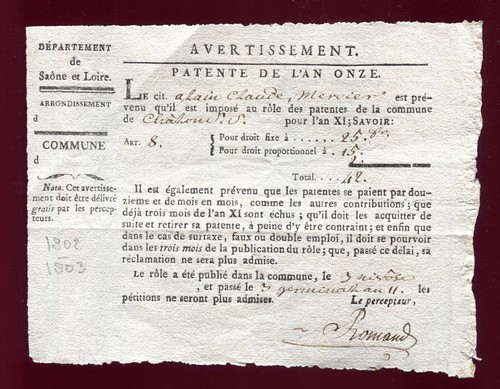 DÉPARTEMENT
de
Saône et Loire.
ARRONDISSEMENT
d
COMMUNE
d
Nota. Cet avertisse-
ment doit être délivré
gratis par les percep-
teurs.
1802
1803
AVERTISSEMENT.
PATENTE DE L'AN ONZE.
LE cit. alain Claude, Mercier est pré-
venu qu'il est imposé au rôle des patentes de la commune
de pour l'an XI; SAVOIR:
ART. 8. Pour droit fixe à 25
Pour droit proportionnel à 15
2
TOTAL 42.
Il est également prévenu que les patentes se paient par dou-
zieme et de mois en mois, comme les autres contributions; que
déjà trois mois de l'an XI sont échus; qu'il doit les acquitter de
suite et retirer sa patente, à peine d'y être contraint; et enfin que
dans le cas de surtaxe, faux ou double emploi, il doit se pourvoir
dans les trois mois de la publication du rôle; que, passé ce délai, sa
réclamation ne sera plus admise.
Le rôle a été publié dans la commune, le 3 nivôse
, et passé le 3 germinal an 11. les
pétitions ne seront plus admises. Le percepteur,
Romand